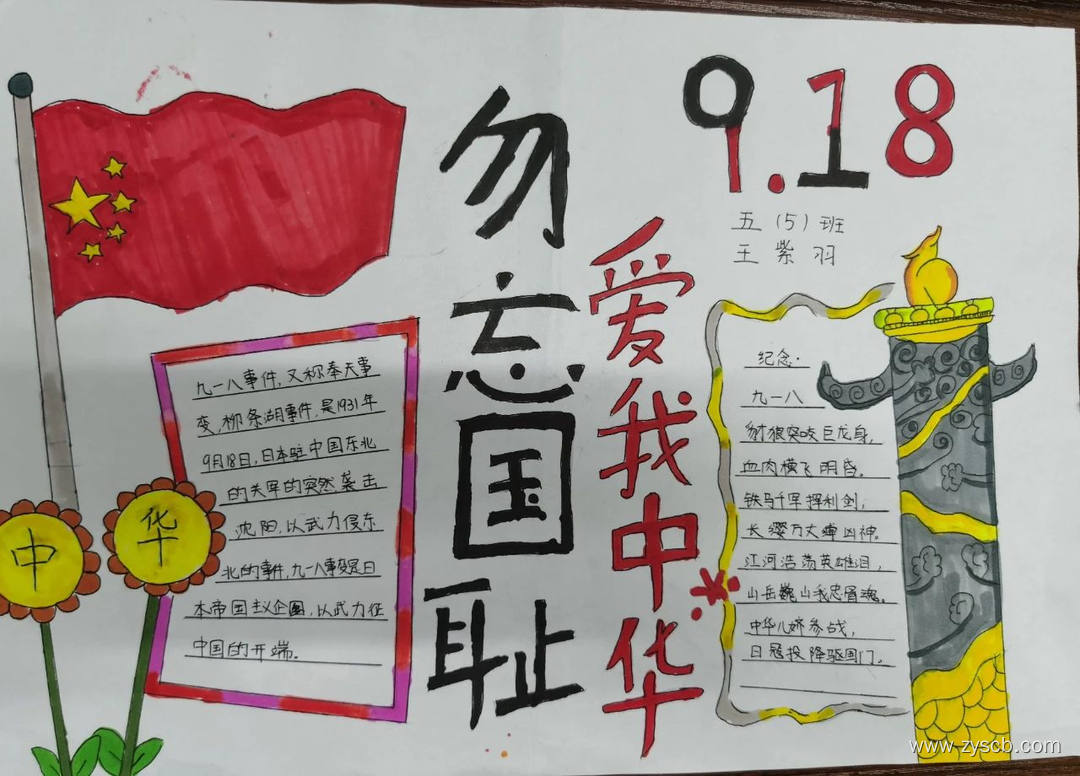 9.18
五(5)班
王紫羽
勿忘国耻
爱我中华
中
华
九一八事件，又称奉天事
变，柳条湖事件，是1931年
9月18日，日本驻中国东北
的关军的突然袭击
沈阳，以武力侵东
北的事件，九一八事变是日
本帝国主义企圖，以武力征
中国的开端。
纪念·
九一八
豺狼突咬巨龙身，
血肉横飞明昏。
铁马千军挥利剑，
长缨万丈缚凶神。
江河浩荡英雄泪，
山岳巍山我忠魂。
中华儿娇参战，
日冦投降驱国门。
www.zyscb.com